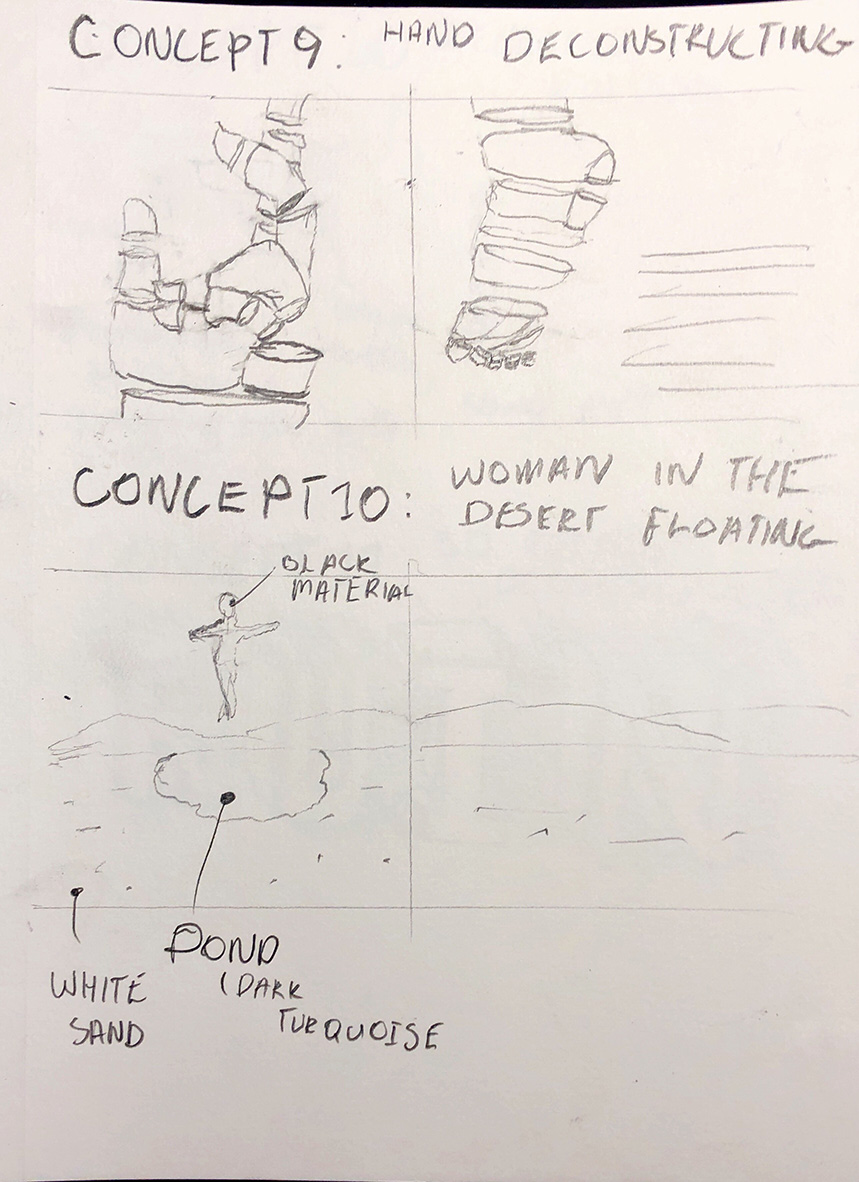 CONCEPT 9: HAND DECONSTRUCTING
CONCEPT 10: WOMAN IN THE
DESERT FLOATING
BLACK
MATERIAL
POND
(DARK
TURQUOISE
WHITE
SAND